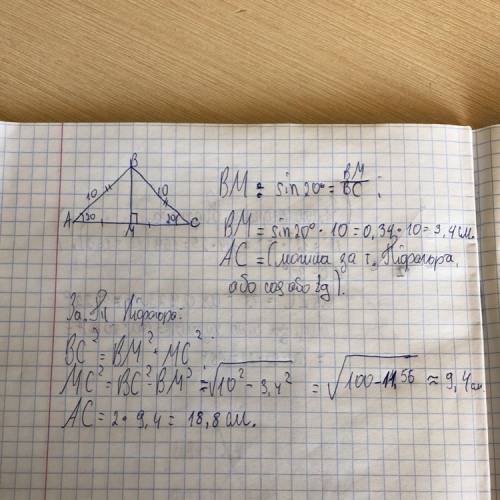 B
10 10
A 20 M 20 C
BM = sin20° = BM/BC ;
BM = sin20° · 10 = 0,34 · 10 = 3,4 см.
AC = (можна за т. Піфагора,
або cos або tg).
За Піфагора:
BC² = BM² + MC²
MC² = BC² - BM² = √10² - 3,4² = √100 - 11,56 ≈ 9,4 см.
AC = 2 · 9,4 = 18,8 см.